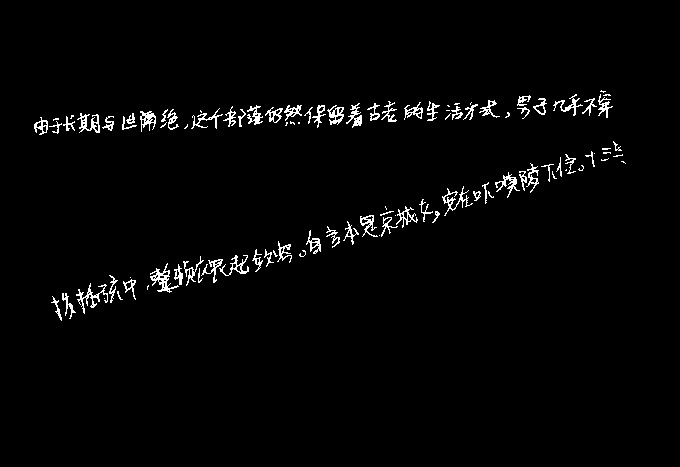 由于长期与世隔绝,这个部落仍然保留着古老的生活方式,男子几乎不穿
放插弦中,整顿衣裳起敛容。自言本是京城女,家在虾蟆陵下住。十三